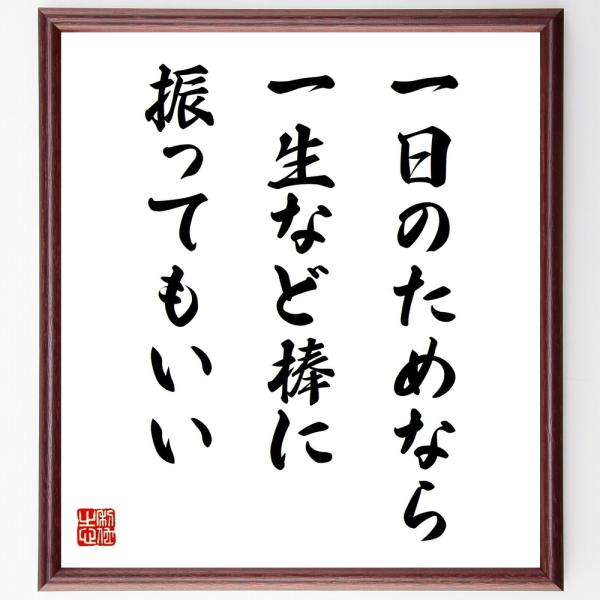 一日のためなら
一生など棒に
振ってもいい